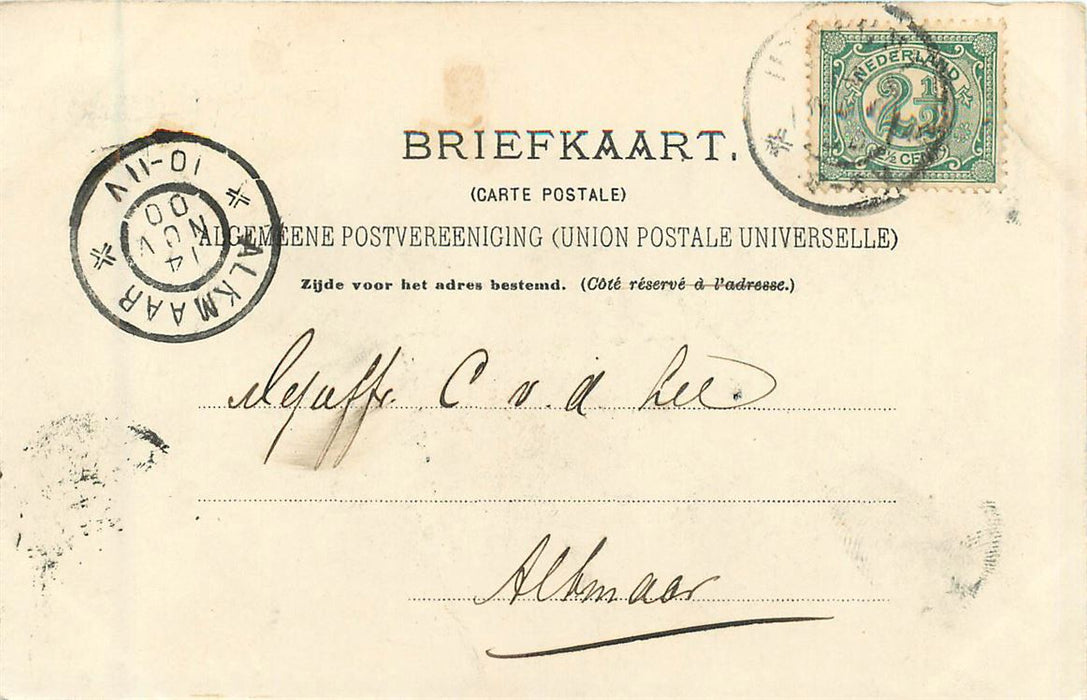 BRIEFKAART.
(CARTE POSTALE)
ALGEMEENE POSTVEREENIGING (UNION POSTALE UNIVERSELLE)
Zijde voor het adres bestemd. (Côté réservé à l'adresse.)
NEDERLAND
2½
(2½ CENT)
ALKMAAR
14
NOV
00
10-11V
Mejuffr. C v. d. Lee.
Alkmaar